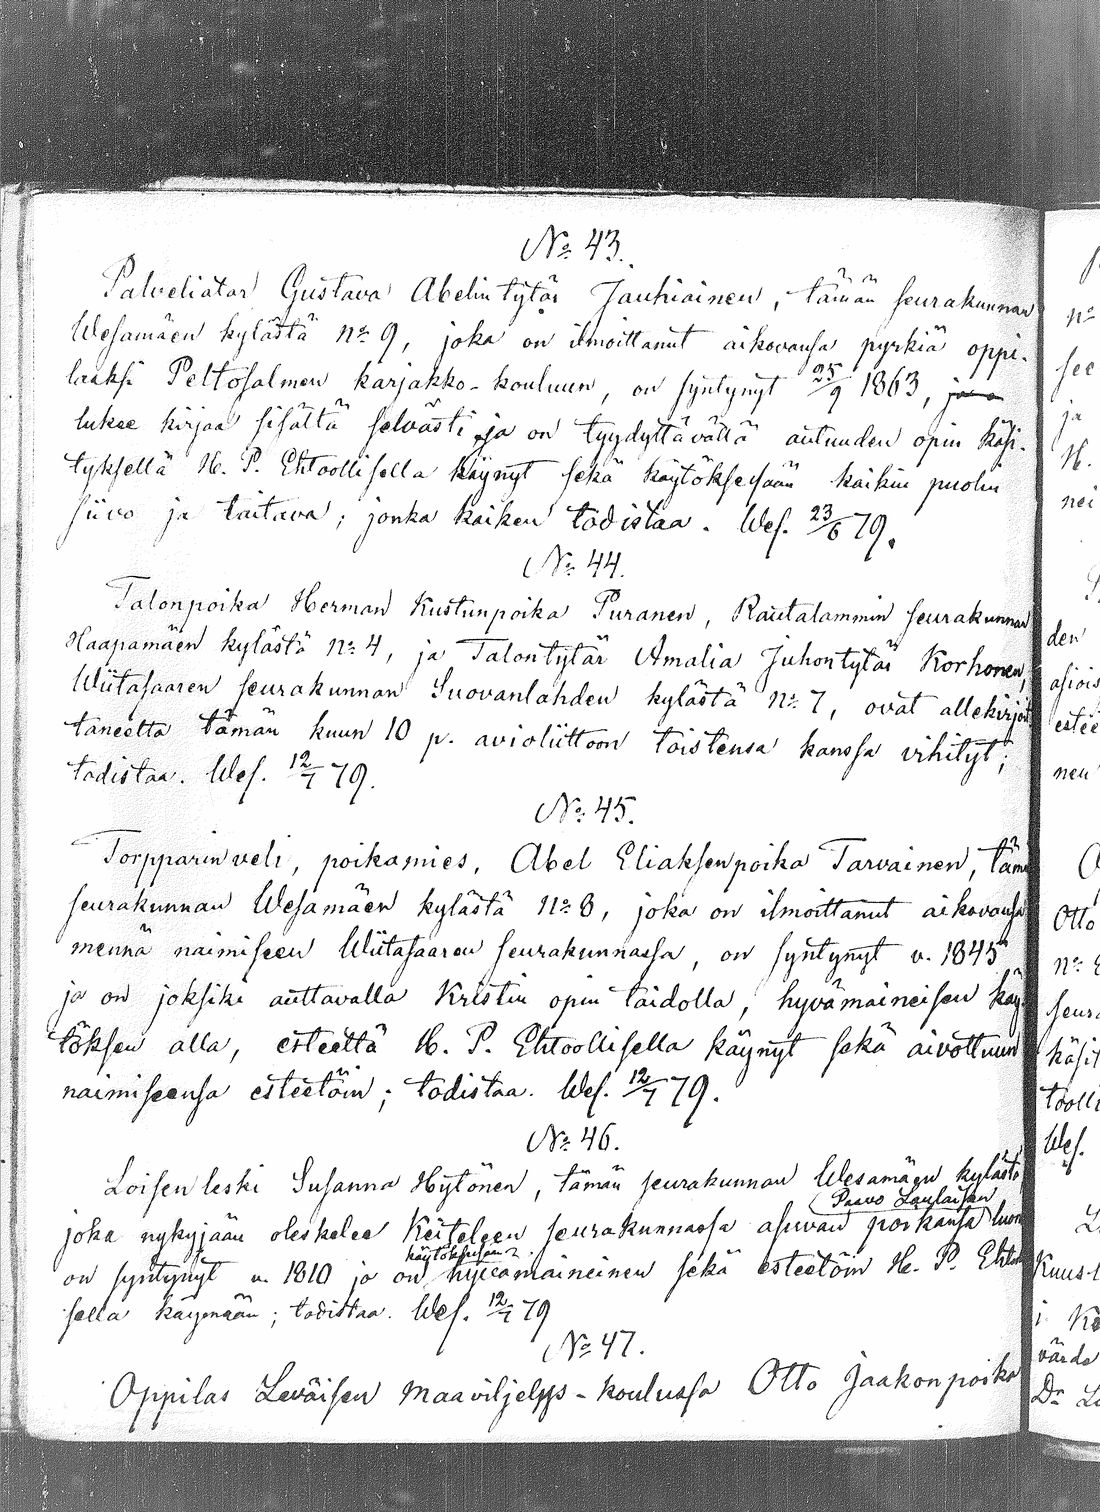 No 43.
Palveliatar Gustava Abelintytär Jauhiainen, tämän seurakunnan
Wesamäen kylästä no 9, joka on ilmoittanut aikovansa pyrkiä oppi-
laaksi Peltosalmen karjakko-kouluun, on syntynyt 25/9 1863,
lukee kirjaa sisältä selvästi ja on tyydyttävällä autuuden opin käsi-
tyksellä H. P. Ehtoollisella käynyt sekä käytöksessään kaikin puolin
siivo ja taitava; jonka kaiken todistaa. Wes. 23/6 79.
No 44.
Talonpoika Herman Kustunpoika Puranen, Rautalammin seurakunnan
Haapamäen kylästä no 4, ja Talontytär Amalia Juhontytär Korhonen,
Wiitasaaren seurakunnan Suovanlahden kylästä no 7, ovat allekirjoit
taneelta tämän kuun 10 p. avioliittoon toistensa kanssa vihityt;
todistaa. Wes. 12/7 79.
No 45.
Torpparin veli, poikamies, Abel Eliaksenpoika Tarvainen, tämä
seurakunnan Wesamäen kylästä no 8, joka on ilmoittanut aikovansa
mennä naimiseen Wiitasaaren seurakunnassa, on syntynyt v. 1845
ja on joksiki auttavalla Kristin opin taidolla, hyvämaineisen käy
töksen alla, esteettä H. P. Ehtoollisella käynyt sekä aivottuun
naimiseensa esteetöin; todistaa. Wes. 12/7 79.
No 46.
Loisen leski Susanna Hytönen, tämän seurakunnan Wesamäen kylästä
(Paavo Laulaisen
joka nykyjään oleskelee Keiteleen seurakunnassa asuvan poikansa) luon
käytöksesään
on syntynyt v. 1810 ja on hyvämaineinen sekä esteetöin H. P. Ehtoo
sella käymään; todistaa. Wes. 12/7 79
No 47.
Oppilas Leväisen maaviljelys-koulussa Otto Jaakonpoika
no
see
ja
H.
nei
den
asiois
estee
nen
Otto
no
seura
käsit
tooll
Wes.
Kuus-
i Ke
värde
Dr